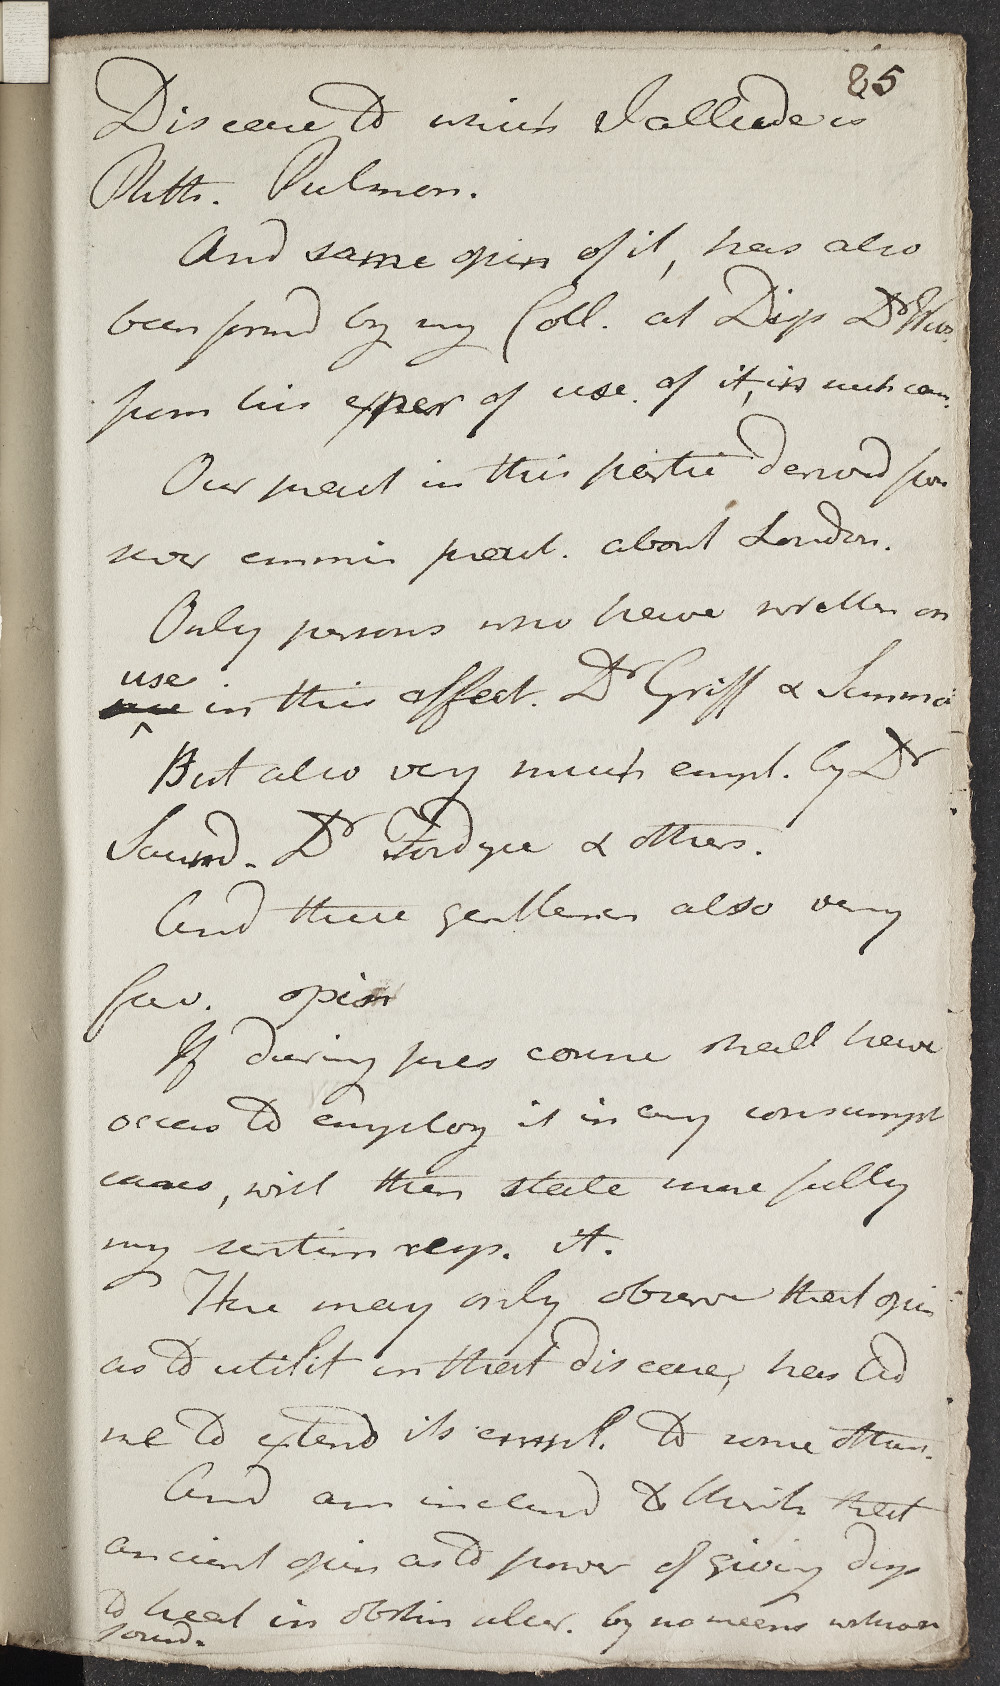 85
Disease to which I allude is
Phth. Pulmon.
And same opin of it, has also
been formd by my Coll. at Disp Dr
from his exper of use of it, in such cas.
Our pract in this partic derived from
sever eminin pract. about London.
Only persons who have written on
use in this affect. Dr Griff & Simmo
But also very much empl. by Dr
Saund. Dr Fordyce & others.
And these gentlemen also very
fav. opin
If during pres course shall have
occas to employ it in any consumpt
cases, will then state more fully
my sentim resp. it.
Here may only observe that opin
as to utilit in that disease, has led
me to extend its empl. to some others.
And am inclend to think that
ancient opin as to power of giving disp
to heal in obstin ulcer. by no means without
found.